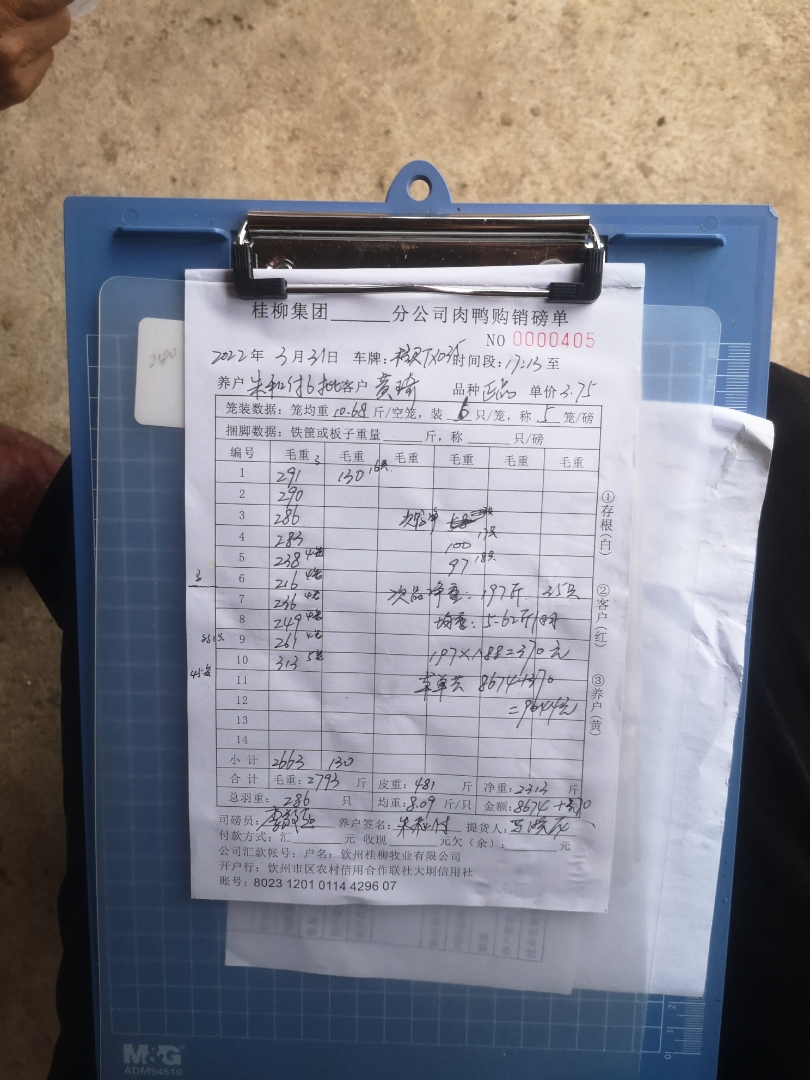 桂柳集团______分公司肉鸭购销磅单
NO 0000405
2022年 3月31日 车牌: 时间段:17:13至
养户 朱和付6批 客户 黄琦 品种 正品 单价 3.75
笼装数据: 笼均重 10.68 斤/空笼, 装 6 只/笼, 称 5 笼/磅
捆脚数据: 铁筐或板子重量______斤, 称______只/磅
编号 毛重 3 毛重 毛重 毛重 毛重 毛重
1 291 130 16只
2 290
3 286 净
4 283 100 17只
5 238 4笼 97 18只
3
6 216 4笼
7 236 4笼 次品净重: 197斤 35只
8 249 4笼 均重: 5.62斤/只
9 261 4笼 197×1.88=370元
10 313 5笼
45笼
11 车单共 8674+370
12 =9044元
13
14
小计 2663 130
合计 毛重: 2793 斤 皮重: 481 斤 净重: 2313 斤
总羽重: 286 只 均重: 8.09 斤/只 金额: 8674+370
司磅员: 养户签名: 朱和付 提货人:
付款方式: 汇______元 收现______元欠(余):______元
公司汇款帐号: 户名: 钦州桂柳牧业有限公司
开户行: 钦州市区农村信用合作联社大垌信用社
账号: 8023 1201 0114 4296 07
①存根(白)
②客户(红)
③养户(黄)
M&G
ADM94510